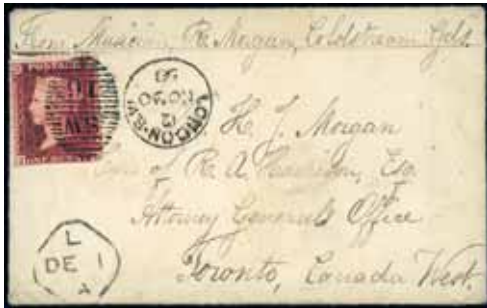 From Musician, R. Morgan, Coldstream Gds.
LONDON·S.W
12
NO 30
S.W
10
ONE PENNY
H. J. Morgan
of R. A. Harrison, Esq.
Attorney General's Office
Toronto, Canada West.
L
DE 1
A